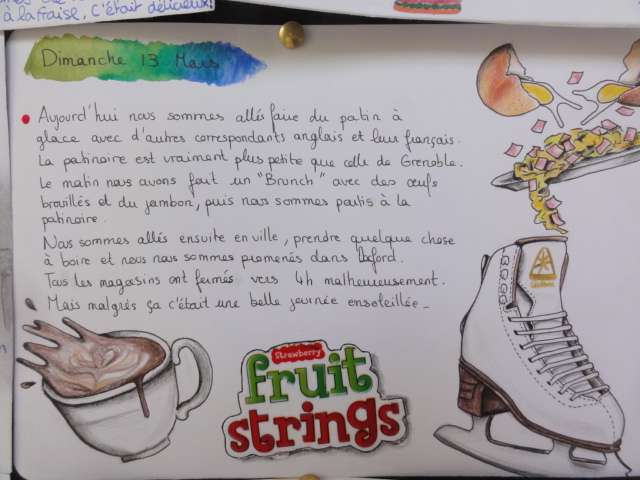 à la fraise, C'était délicieux!
Dimanche 13 Mars
Aujourd'hui nous sommes allés faire du patin à
glace avec d'autres correspondants anglais et leur français.
La patinoire est vraiment plus petite que celle de Grenoble.
Le matin nous avons fait un "Brunch" avec des œufs
brouillés et du jambon, puis nous sommes partis à la
patinoire.
Nous sommes allés ensuite en ville, prendre quelque chose
à boire et nous nous sommes promenés dans Oxford.
Tous les magasins ont fermés vers 4h malheureusement.
Mais malgrès ça c'était une belle journée ensoleillée.
Strawberry
fruit
strings